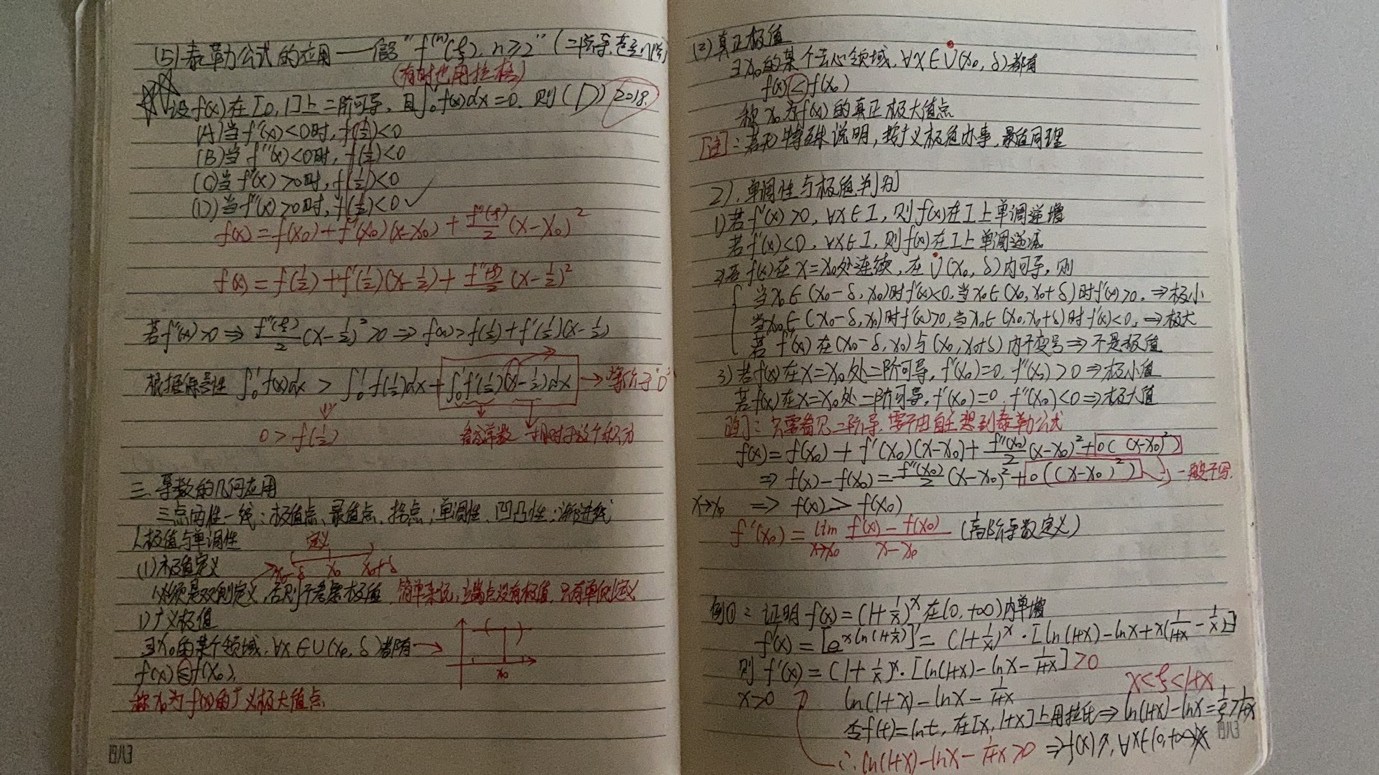 (5)泰勒公式的应用——信号"f⁽ⁿ⁾(ξ), n≥2"(二阶导, 甚至n阶)
(有时也用拉格)
设f(x)在[0,1]上二阶可导, 且∫₀¹f(x)dx=0, 则(D) 2018.
(A)当f'(x)<0时, f(1/2)<0
(B)当f''(x)<0时, f(1/2)<0
(C)当f'(x)>0时, f(1/2)<0
(D)当f''(x)>0时, f(1/2)<0 ✓
f(x)=f(x₀)+f'(x₀)(x-x₀)+f''(ξ)/2 (x-x₀)²
f(x)=f(1/2)+f'(1/2)(x-1/2)+f''(ξ)/2 (x-1/2)²
若f''(x)>0 ⇒ f''(ξ)/2 (x-1/2)²>0 ⇒ f(x)>f(1/2)+f'(1/2)(x-1/2)
根据保号性 ∫₀¹f(x)dx > ∫₀¹f(1/2)dx+∫₀¹f'(1/2)(x-1/2)dx → 等价于"0"
0>f(1/2)
三. 导数的几何应用
三点两性一线: 极值点、最值点、拐点; 单调性、凹凸性; 渐进线
1.极值与单调性
定义
(1)极值定义 x₀-δ x₀ x₀+δ
必须是双侧定义, 否则不考虑极值 简单来说, 端点没有极值, 只有单侧定义
1)广义极值
∃x₀的某个领域, ∀x∈U(x₀, δ)都有→
f(x)≤f(x₀),
x₀
称x₀为f(x)的广义极大值点
(2)真正极值
∃x₀的某个去心领域, ∀x∈U̇(x₀, δ)都有
f(x)<f(x₀)
称x₀为f(x)的真正极大值点
[注]: 若无特殊说明, 按广义极值办事, 最值同理
2). 单调性与极值判别
1)若f'(x)>0, ∀x∈I, 则f(x)在I上单调递增
若f'(x)<0, ∀x∈I, 则f(x)在I上单调递减
2)若f(x)在x=x₀处连续, 在U̇(x₀, δ)内可导, 则
当x₀∈(x₀-δ, x₀)时f'(x)<0, 当x₀∈(x₀, x₀+δ)时f'(x)>0, ⇒极小
当x₀∈(x₀-δ, x₀)时f'(x)>0, 当x₀∈(x₀, x₀+δ)时f'(x)<0, ⇒极大
若f'(x)在(x₀-δ, x₀)与(x₀, x₀+δ)内不变号⇒不是极值
3)若f(x)在x=x₀处二阶可导, f'(x₀)=0, f''(x₀)>0⇒极小值
若f(x)在x=x₀处二阶可导, f'(x₀)=0, f''(x₀)<0⇒极大值
只要看见二阶导, 要不由自主想到泰勒公式
f(x)=f(x₀)+f'(x₀)(x-x₀)+f''(x₀)/2 (x-x₀)²+o((x-x₀)²)
⇒f(x)-f(x₀)=f''(x₀)/2 (x-x₀)²+o((x-x₀)²) 一般不写.
x→x₀ ⇒ f(x)>f(x₀)
f''(x₀)=lim x→x₀ f'(x)-f'(x₀)/x-x₀ (高阶导数定义)
例①: 证明f(x)=(1+1/x)ˣ在(0,+∞)内单增
f'(x)=[e^{xln(1+1/x)}]'=(1+1/x)ˣ·[ln(1+x)-lnx+x(1/(1+x)-1/x)]
则f'(x)=(1+1/x)ˣ·[ln(1+x)-lnx-1/(1+x)]>0
x>0 ln(1+x)-lnx-1/(1+x) x<ξ<1+x
令f(t)=lnt, 在[x,1+x]上用拉氏⇒ln(1+x)-lnx=1/ξ>1/(1+x)
∴ln(1+x)-lnx-1/(1+x)>0 ⇒f(x)↗, ∀x∈(0,+∞)